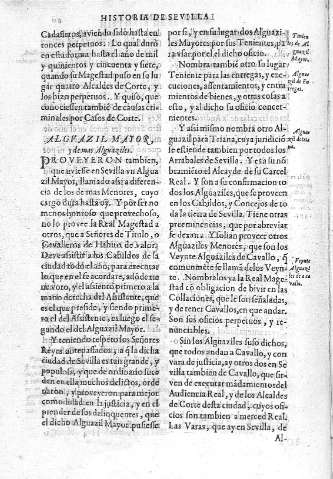 HISTORIA DE SEVILLA
Cadañeros, aviendo sido hasta en
tonces perpetuos: Lo qual duró
en esta forma hasta el año de mil
y quinientos y cincuenta y siete,
quando su Magestad puso en su lu-
gar quatro Alcaldes de Corte, y
los hizo perpetuos. Y quiso, que
conociessen tambié de causas cri-
minales por Casos de Corte.
ALGVAZIL MAYOR,
y demas Alguaziles.
PROVEYERON tambien,
que uviesse en Sevilla vn Algua
zil Mayor, llamado assi a diferen-
cia de los demas Menores, cuyo
cargo dura hasta oy. Y por ser no
menos honroso que provechoso,
no lo provee la Real Magestad a
otros, que a Señores de Titulo, o
Cavalleros de Habito de valor.
Deve assistir a los Cabildos de la
ciudad todo el año, para executar
lo que en el se acordare, assi de no
voto, y el assiento primero a la
mano derecha del Assistente, que
es el que preside, y siendo prime-
ro el del Assistente, es luego el se-
gundo el del Alguazil Mayor.
Y teniendo respeto los Señores
Reyes antepassados, a q̃ la dicha
ciudad de Sevilla es tan grande, y
populosa, y que de ordinario suce
den en ella muchos delictos, orde
naron, y proveyeron para mejor
comodidad en la justicia, y en el
prender de los delinquentes, que
el dicho Alguazil Mayor pusiesse
por si, y en su lugar dos Alguazi-
les Mayores por sus Tenientes, pa
ra el vso del dicho oficio.
Nombra tambien otro su lugar
Teniente para las entregas, y exe-
cuciones, assentamientos, y entra
mientos de bienes, y otras cosas a
esto, y al dicho su oficio concer-
nientes.
Y assi mismo nombra otro Al-
guazil para Triana, cuya jurisdició
se estiende tambien por todos los
Arrabales de Sevilla. Y essa su nó
bramiéto el Alcayde de su Carcel
Real. Y son a su confirmacion to
dos los Alguaziles, que se proveen
en los Cabildos, y Concejos de to
da la tierra de Sevilla. Tiene otras
preeminencias, que por abreviar
se dexan. Y solian proveer otros
Alguaziles Menores, que son los
Veynte Alguaziles de Cavallo, q̃
comunméte se llamá de los Veyn
te. Nombralos ya la Real Mages-
tad có obligacion de bivir en las
Collaciones, que le son señaladas,
y de tener Cavallos, en que andar.
Son sus oficios perpetuos, y re-
nunciables.
Sin los Alguaziles suso dichos,
que todos andan a Cavallo, y con
vara de justicia, ay otros dos en Se
villa tambien de Cavallo, que sir-
ven de executar mádamientos del
Audiencia Real, y de los Alcaldes
de Corte desta ciudad, cuyos ofi-
cios son tambien a merced Real.
Las Varas, que ay en Sevilla, de
Al-